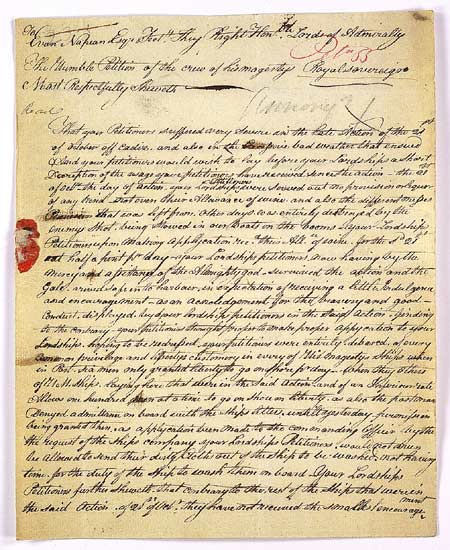 To
Evan Nepean Esqr Secty Their Right Honble Lords of Admiralty
The Humble Petition of the crew of his magestys Royal Sovereign
Most Respectfully Sheweth
Read
That your Petitioners suffered very severe in the late Action of the 21st
of October off Cadiz, and also in the bad weather that ensued
and your petitioners would wish to Lay before your Lordships a short
Description of the usage your petitioners have received since the action the 21
of Octr the day of action, your Lordships were served out no provision or Liquor
of any kind not even their Allowance of wine and also the different mess
that was left from other days was entirely destroyed by the
enemys shot being stowed in our Boats on the Booms &
Petitioners upon Making application recd their All. of sd 21
but half a pint pr day your Lordships petitioners now having by the
mercy and assistance of the Almighty god survived the action and the
Gale arrived safe into Harbour, in expectation of receiving a Little Indulgence
and encouragement as an acknowledgement for the bravery and good
Conduct displayed by your lordships petitioners in the said Action finding
to the contrary your petitioners thought proper to make proper application to your
Lordships hoping to be redressed your petitioners were entirely debarred of every
common privilege and Liberty customary in every of His Magestys Ships when
in Port six men only granted liberty to go on shore pr day When they others
of H M Ships laying here that were in the said Action and of an Inferiour rate
Allows one hundred men at a time to go on shore on Liberty, as also the postman
Denyed admittance on board with the Ships Letters untill yesterday permission
being granted them, as application been made to the commanding Officer by the
the request of the Ships company your Lordships Petitioners would not even
be allowed to send their dirty Cloths out of the Ship to be washed not having
time for the duty of the Ship to wash them on board Your Lordships
Petitioners further sheweth that contrary to the rest of the Ships that were in
the said Action of 21st of Octr they have not received the smallest encouragement